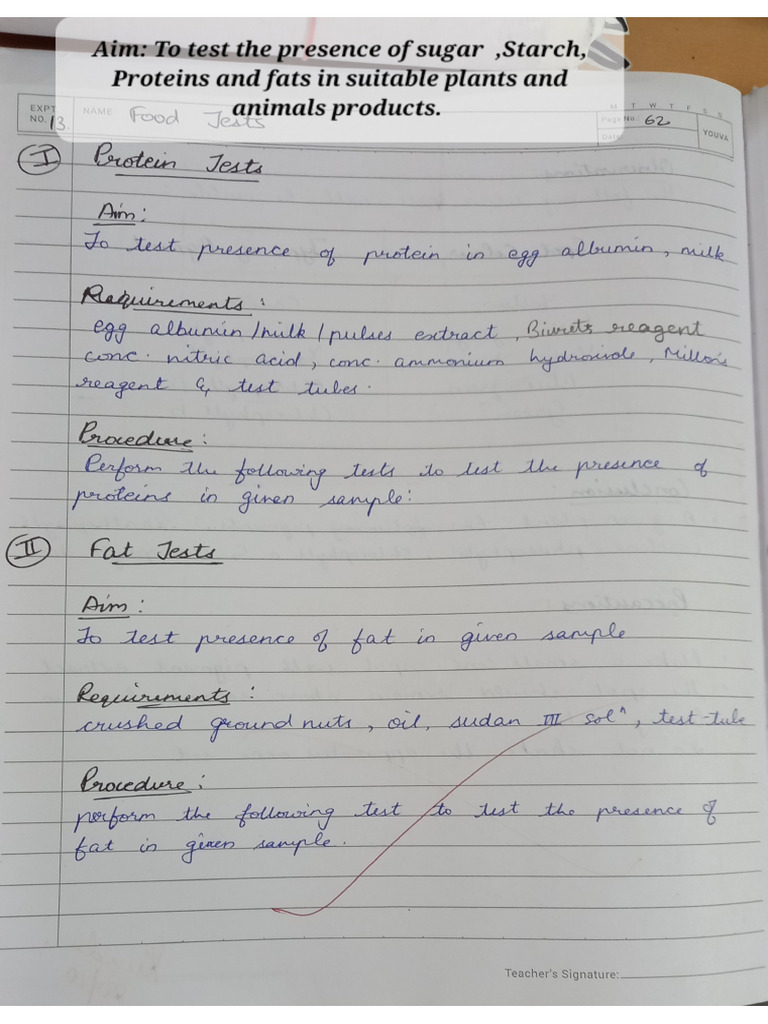 Aim: To test the presence of sugar ,Starch,
Proteins and fats in suitable plants and
animals products.
EXPT. NO. 13. NAME Food Tests
M T W T F S S
Page No. 62
Date:
YOUVA
I Protein Tests
Aim:
To test presence of protein in egg albumin, milk
Requirements:
egg albumin/milk/pulses extract, Biurets reagent
conc. nitric acid, conc. ammonium hydroxide, Millon's
reagent & test tubes.
Procedure:
Perform the following tests to test the presence of
proteins in given sample:
II Fat Tests
Aim:
To test presence of fat in given sample
Requirements:
crushed ground nuts, oil, sudan III solⁿ, test-tube
Procedure:
perform the following test to test the presence of
fat in given sample.
Teacher's Signature: